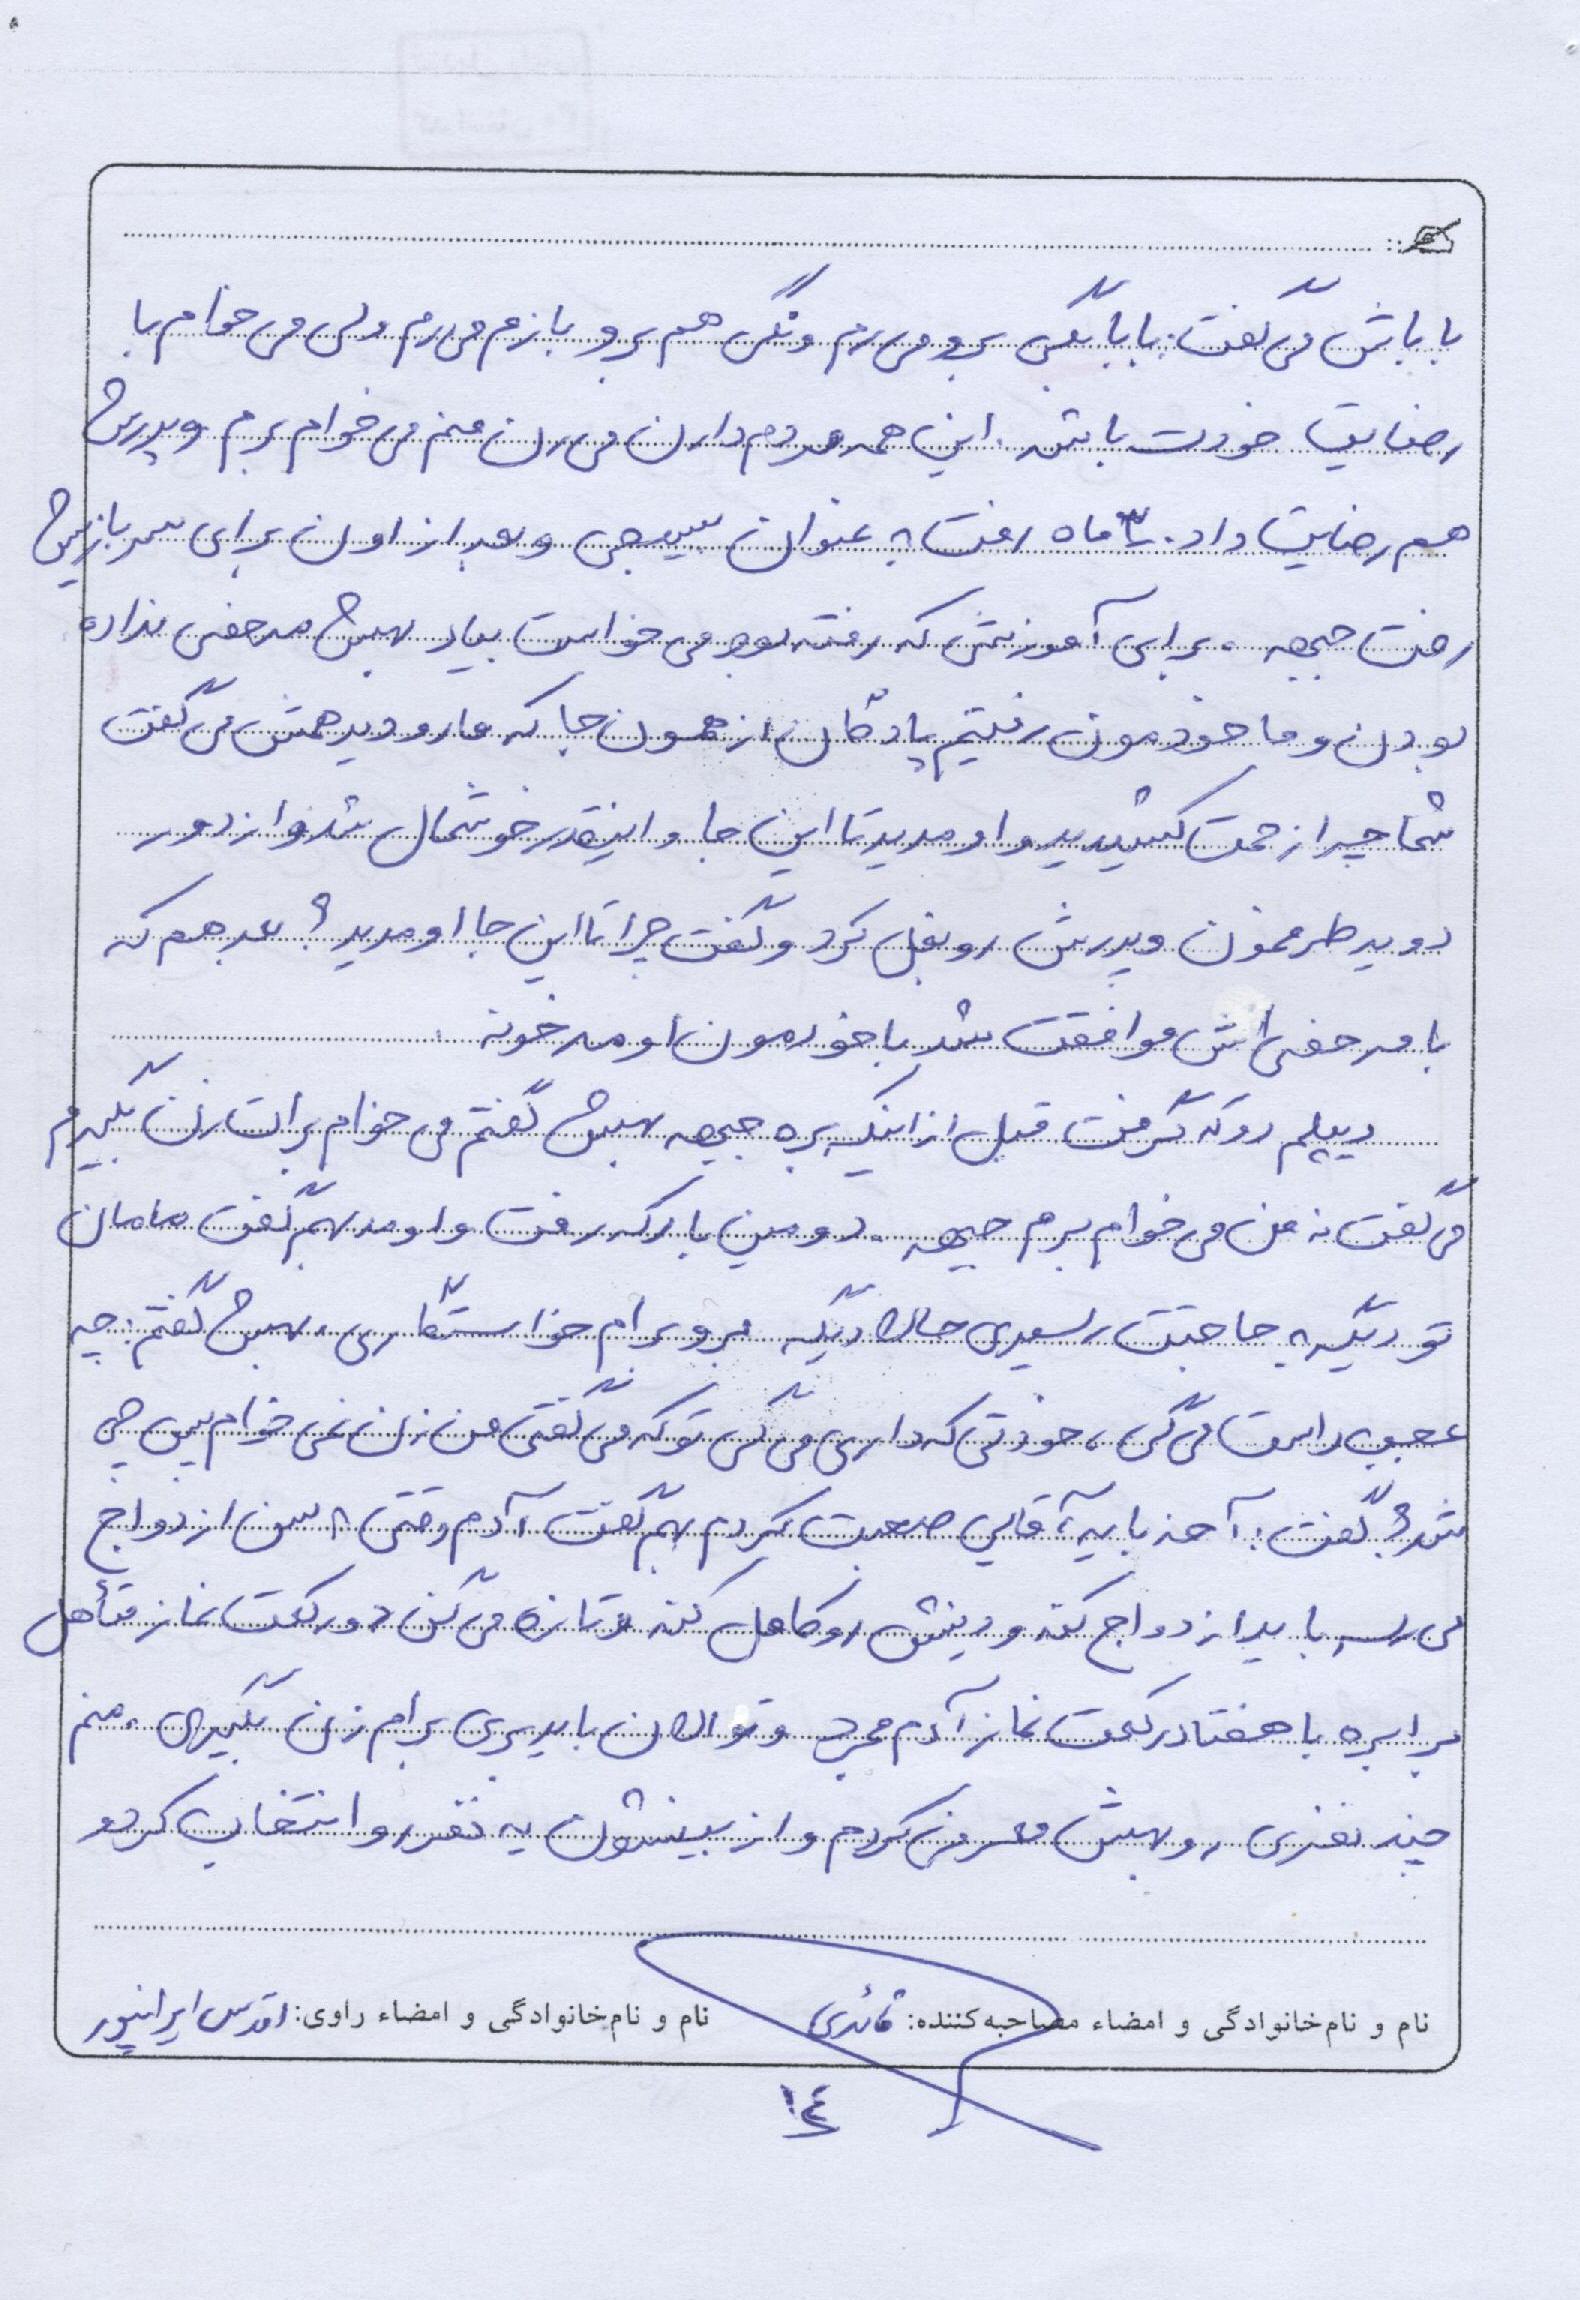 باباش می گفت: بابا بگی برو می رم و نگی هم برو بازم می رم ولی می خوام با
رضایت خودت باشه. این همه مردم دارن می رن منم می خوام برم و پدرش
هم رضایت داد. ۳ ماه رفت به عنوان بسیجی و بعد از اون برای سربازیش
رفت جبهه. برای آموزشی که رفته بود می خواست بیاد بهش مرخصی نداده
بودن و ما خودمون رفتیم پادگان، از همون جا که ما رو دید همش می گفت
شما چرا زحمت کشیدید و اومدید تا این جا و اینقدر خوشحال شد و از دور
دوید طرفمون و پدرش رو بغل کرد و گفت چرا تا این جا اومدید؟ بعد هم که
با مرخصی اش موافقت شد با خودمون اومد خونه.
دیپلم رو که گرفت قبل از اینکه بره جبهه بهش گفتم می خوام برات زن بگیرم
می گفت نه من می خوام برم جبهه. دومین بار که رفت و اومد بهم گفت مامان
تو دیگه به حاجتت رسیدی حالا دیگه برو برام خواستگاری، بهش گفتم: چه
عجب راست می گی، خودتی که داری می گی تو که می گفتی من زن نمی خوام پس چی
شد؟ گفت: آخه با یه آقایی صحبت کردم بهم گفت آدم وقتی به سن ازدواج
می رسه باید ازدواج کنه و دینش رو کامل کنه و تازه می گن دو رکعت نماز متأهل
برابره با هفتاد رکعت نماز آدم مجرد و تو الان باید بری برام زن بگیری. منم
چند نفری رو بهش معرفی کردم و از بینشون یه نفر رو انتخاب کرد و
نام و نام خانوادگی و امضاء مصاحبه کننده: قائدی نام و نام خانوادگی و امضاء راوی: اقدس ایرانپور
۱٤